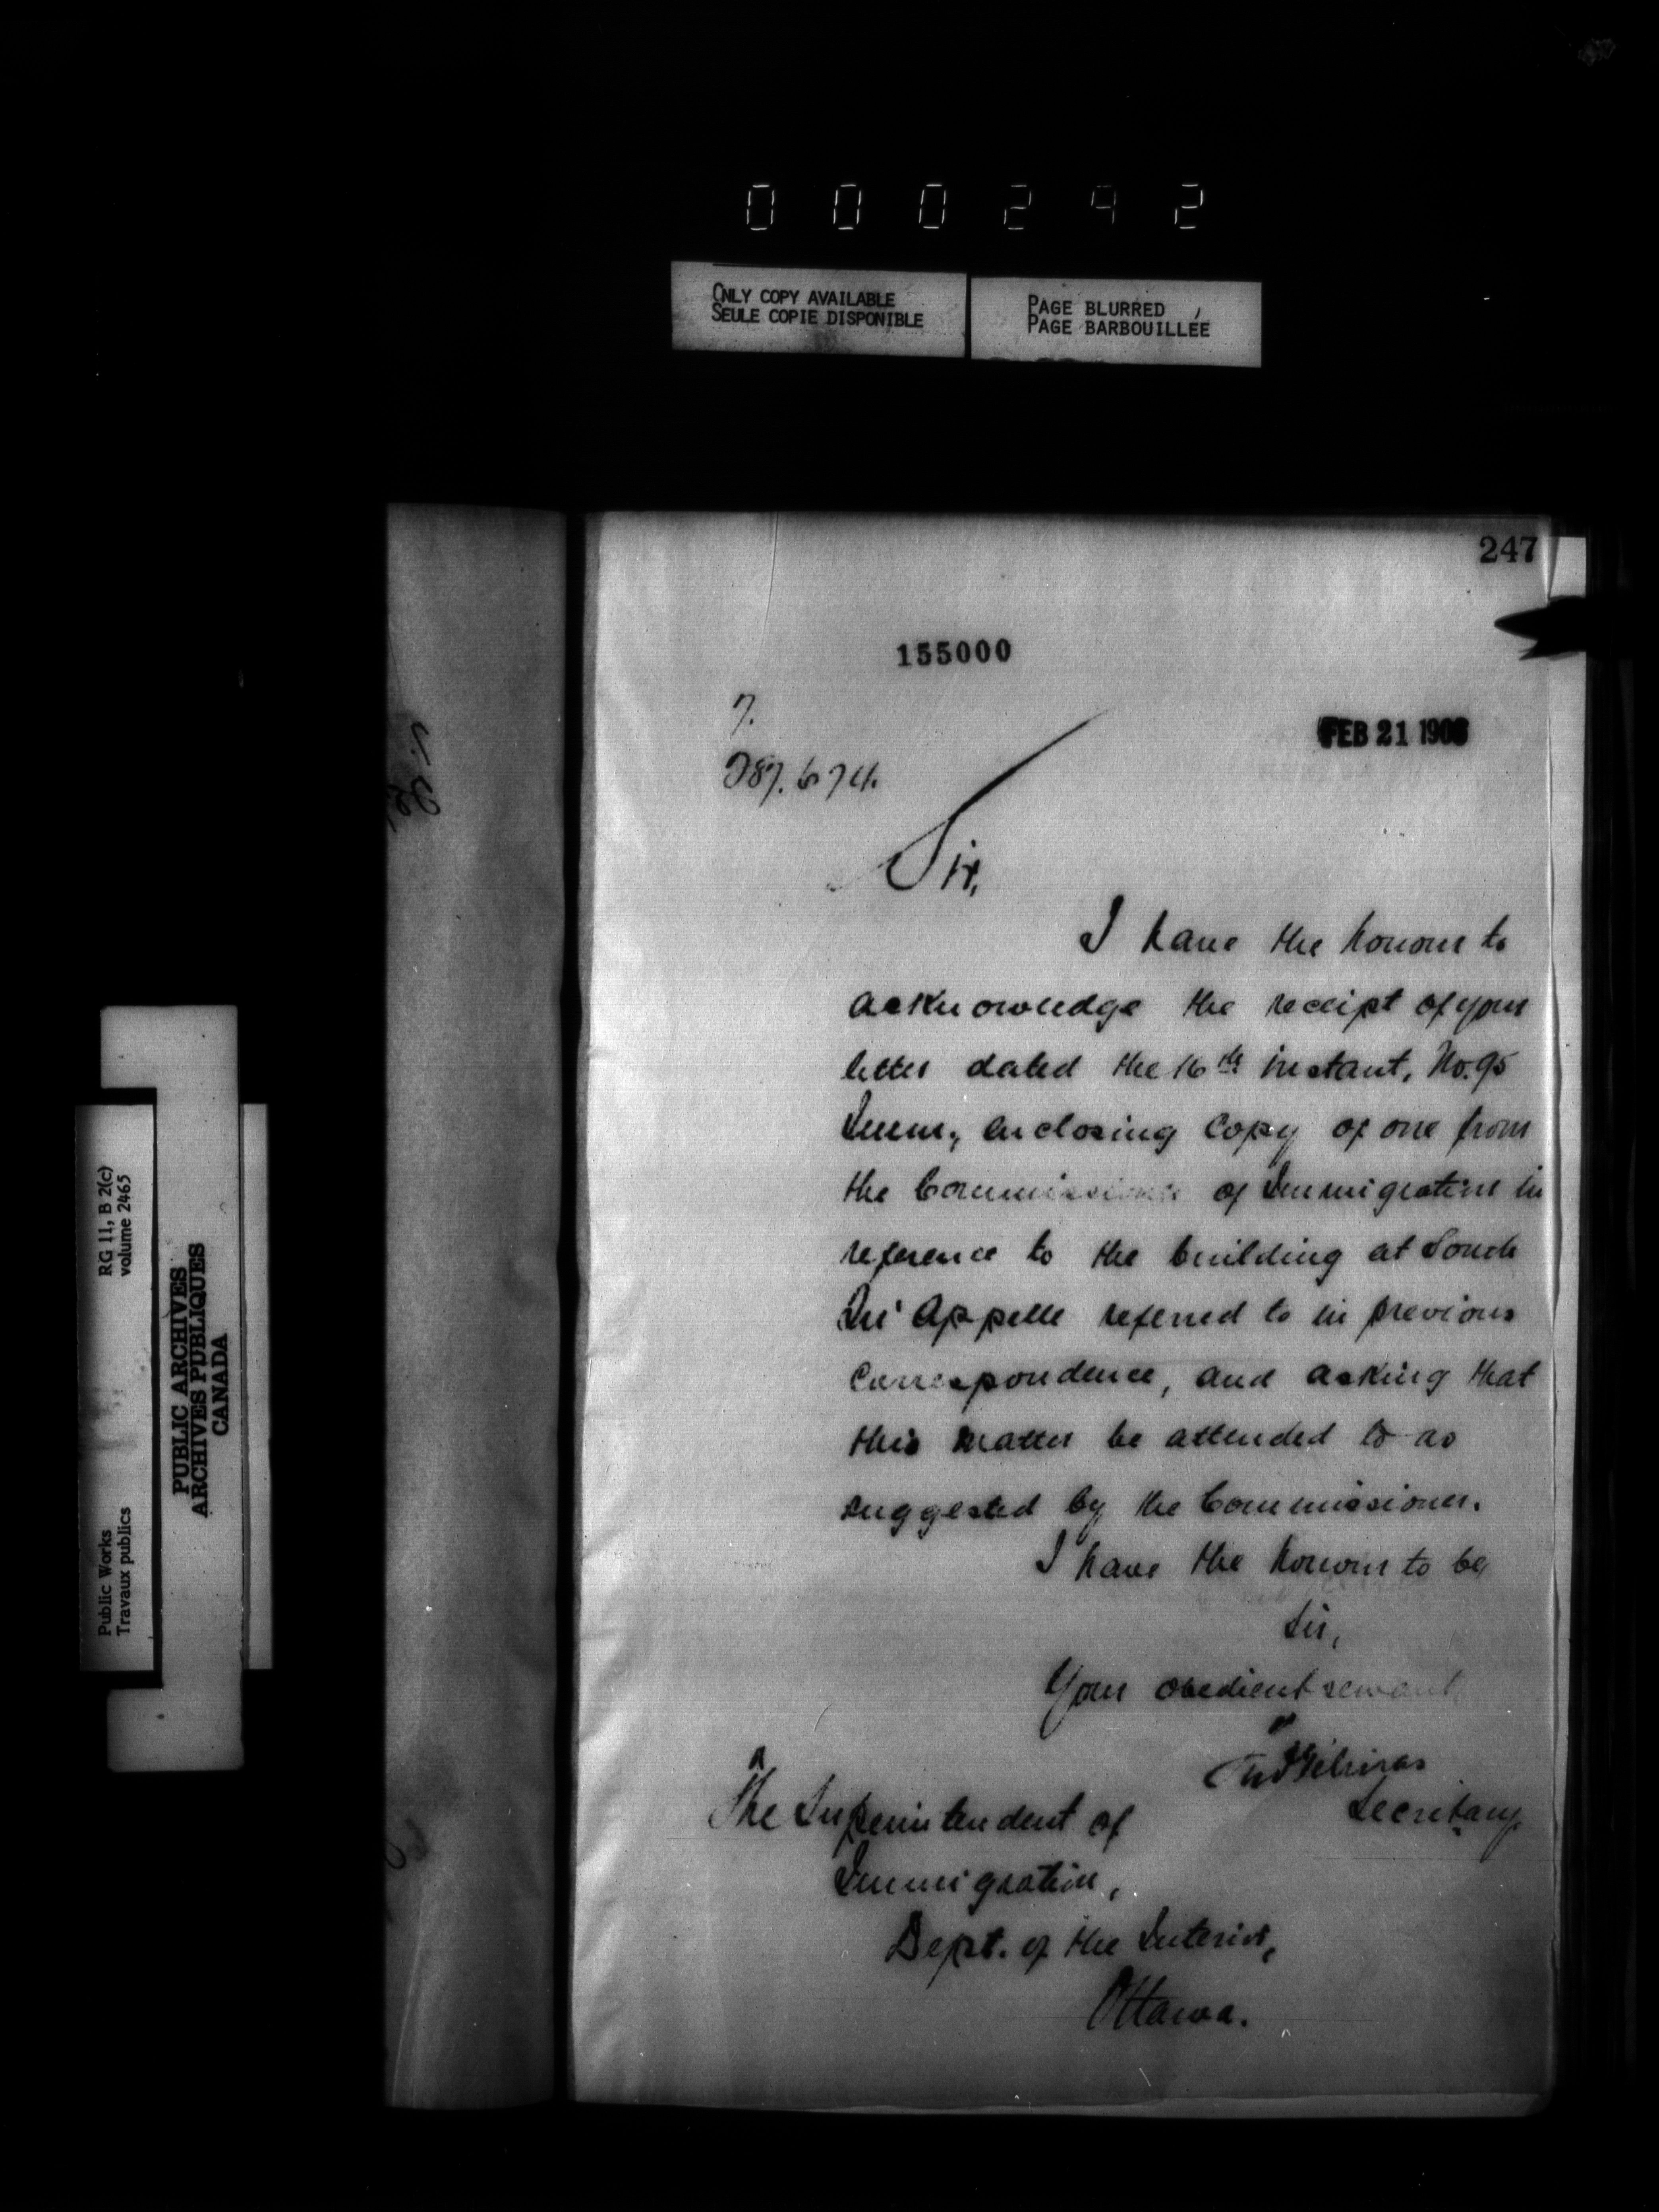 000292
ONLY COPY AVAILABLE
SEULE COPIE DISPONIBLE
PAGE BLURRED
PAGE BARBOUILLÉE
247
155000
FEB 21 1906
7.
287.674.
Sir,
I have the honour to
acknowledge the receipt of your
letter dated the 16th instant, No. 95
Imm., enclosing copy of one from
the Commissioner of Immigration in
reference to the building at South
Qu'Appelle referred to in previous
correspondence, and asking that
this matter be attended to as
suggested by the Commissioner.
I have the honour to be,
Sir,
Your obedient servant,
Secretary.
The Superintendent of
Immigration,
Dept. of the Interior,
Ottawa.
RG 11, B 2(c)
volume 2465
Public Works
Travaux publics
PUBLIC ARCHIVES
ARCHIVES PUBLIQUES
CANADA